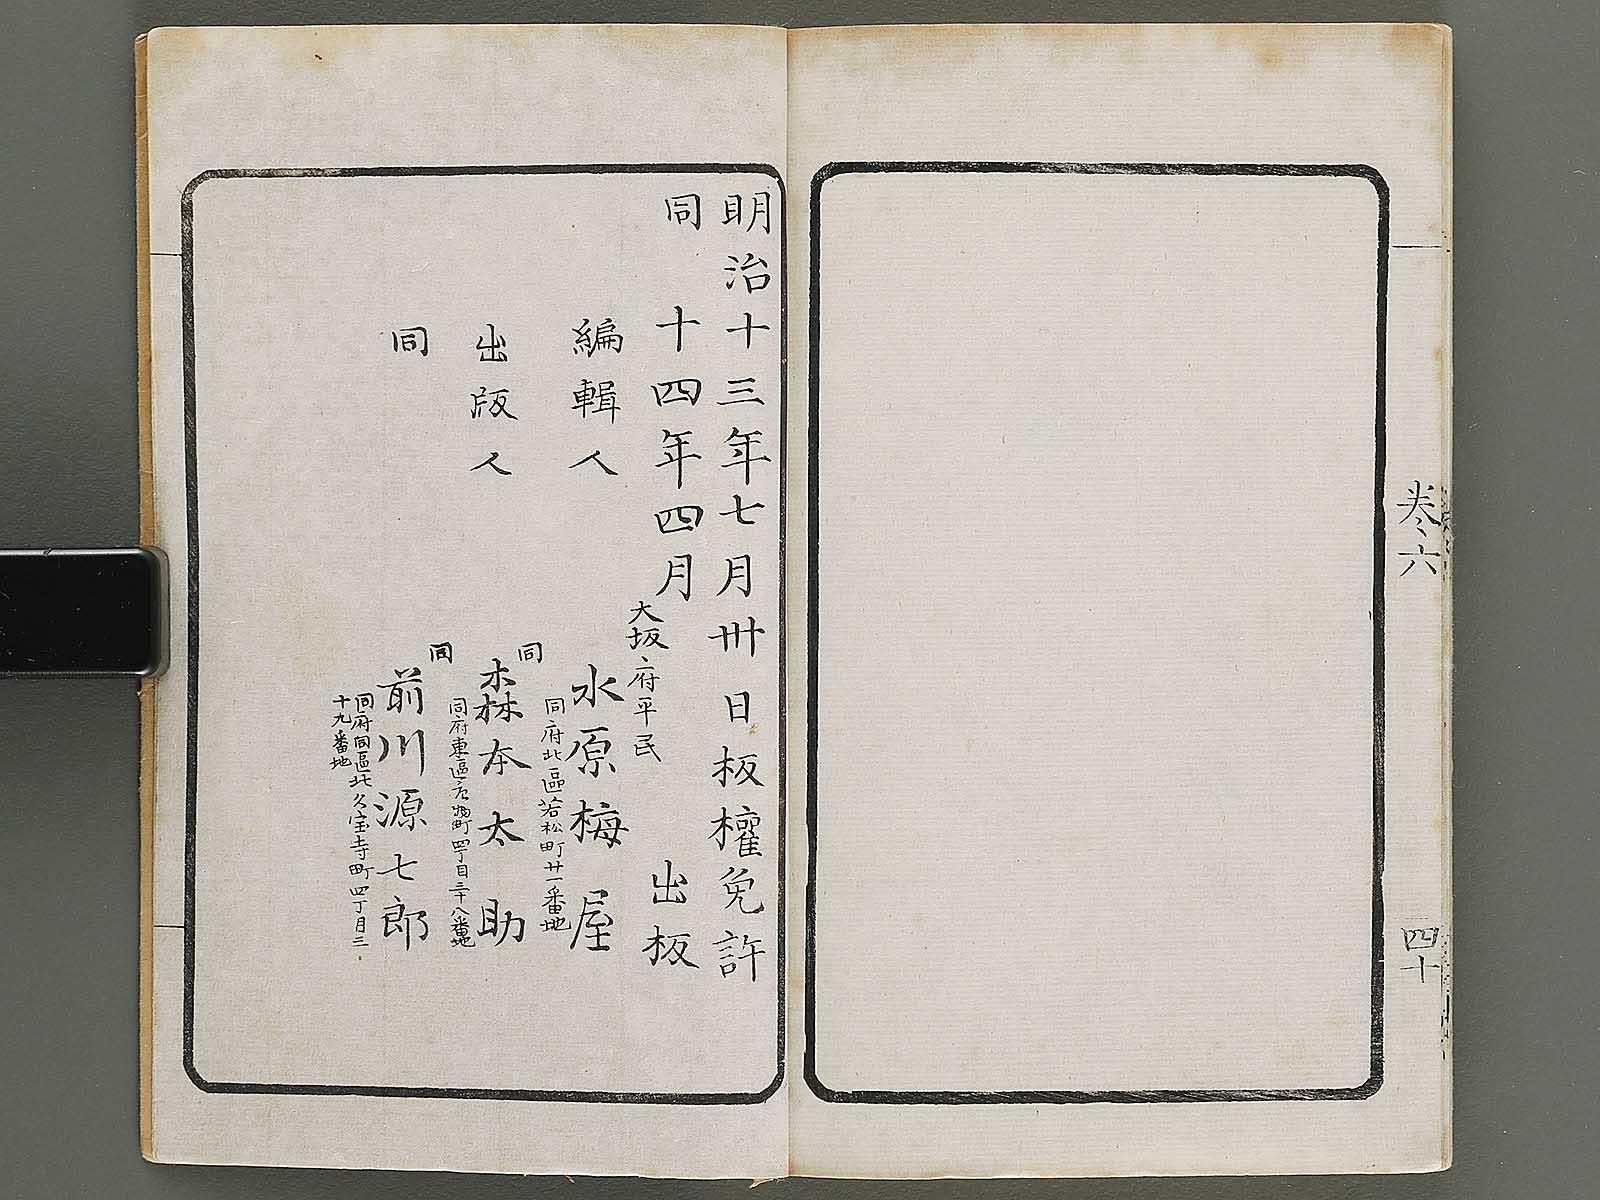 巻六
四十
明治十三年七月卅日板權免許
同十四年四月出板
大坂府平民
編輯人 水原梅屋
同府北區若松町廿一番地
同
出版人 森本太助
同府東區唐物町四丁目三十八番地
同
同 前川源七郎
同府同區北久宝寺町四丁目三
十九番地